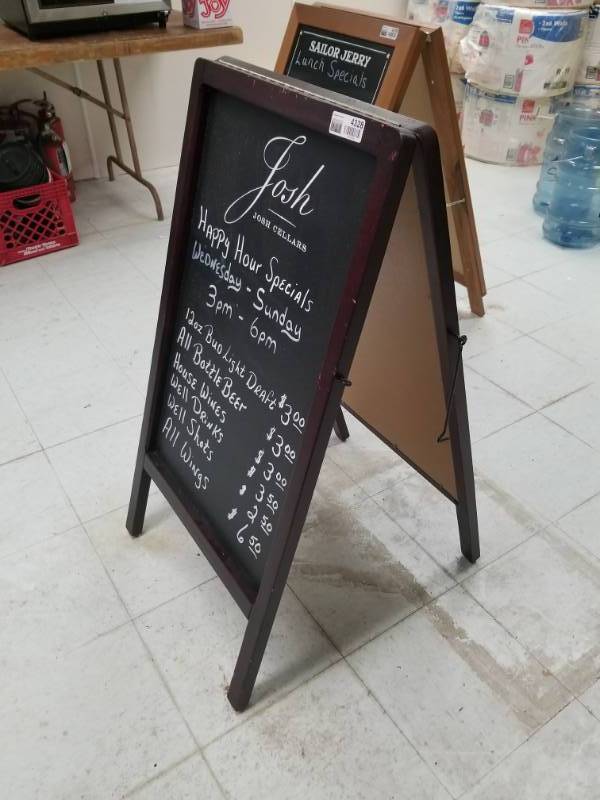 JOY
SAILOR JERRY
Lunch Specials
4126
Josh
JOSH CELLARS
Happy Hour Specials
Wednesday - Sunday
3pm - 6pm
12oz Bud Light Draft $3.00
All Bottle Beer $3.00
House Wines $3.00
Well Drinks $3.50
Well Shots $2.50
All Wings $6.50
PINK